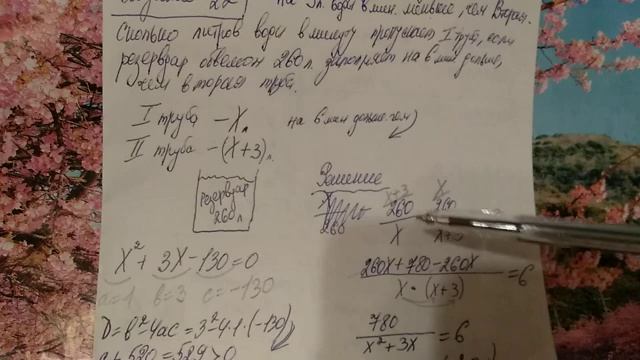 на 3 л. воды в мин. меньше, чем вторая.
Сколько литров воды в минуту пропускает I труба, если
резервуар объемом 260 л. заполняет на 6 мин дольше,
чем вторая труба.
I труба – X л
на 6 мин дольше чем
II труба – (X+3) л.
резервуар
260 л
Решение
X+3 X
260 260
X X+3
X² + 3X – 130 = 0
260X + 780 – 260X
= 6
X · (X+3)
a=1 b=3 c=-130
D = b² – 4ac = 3² – 4·1·(-130)
780
= 6
X² + 3X